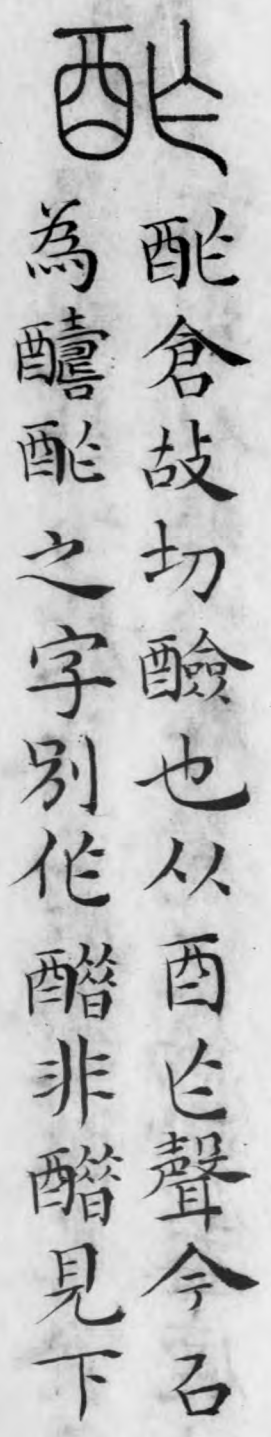 酢
酢倉故切醶也从酉乍聲今㠯
為醻酢之字別作醋非醋見下